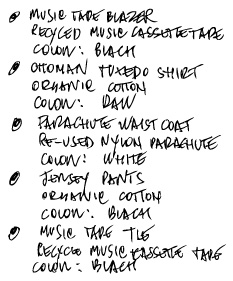 MUSIC TAPE BLAZER
RECYCED MUSIC CASSETTE TAPE
COLOUR: BLACK
OTTOMAN TUXEDO SHIRT
ORGANIC COTTON
COLOUR: RAW
PARACHUTE WAIST COAT
RE-USED NYLON PARACHUTE
COLOUR: WHITE
JERSEY PANTS
ORGANIC COTTON
COLOUR: BLACK
MUSIC TAPE TIE
RECYCED MUSIC CASSETTE TAPE
COLOUR: BLACK